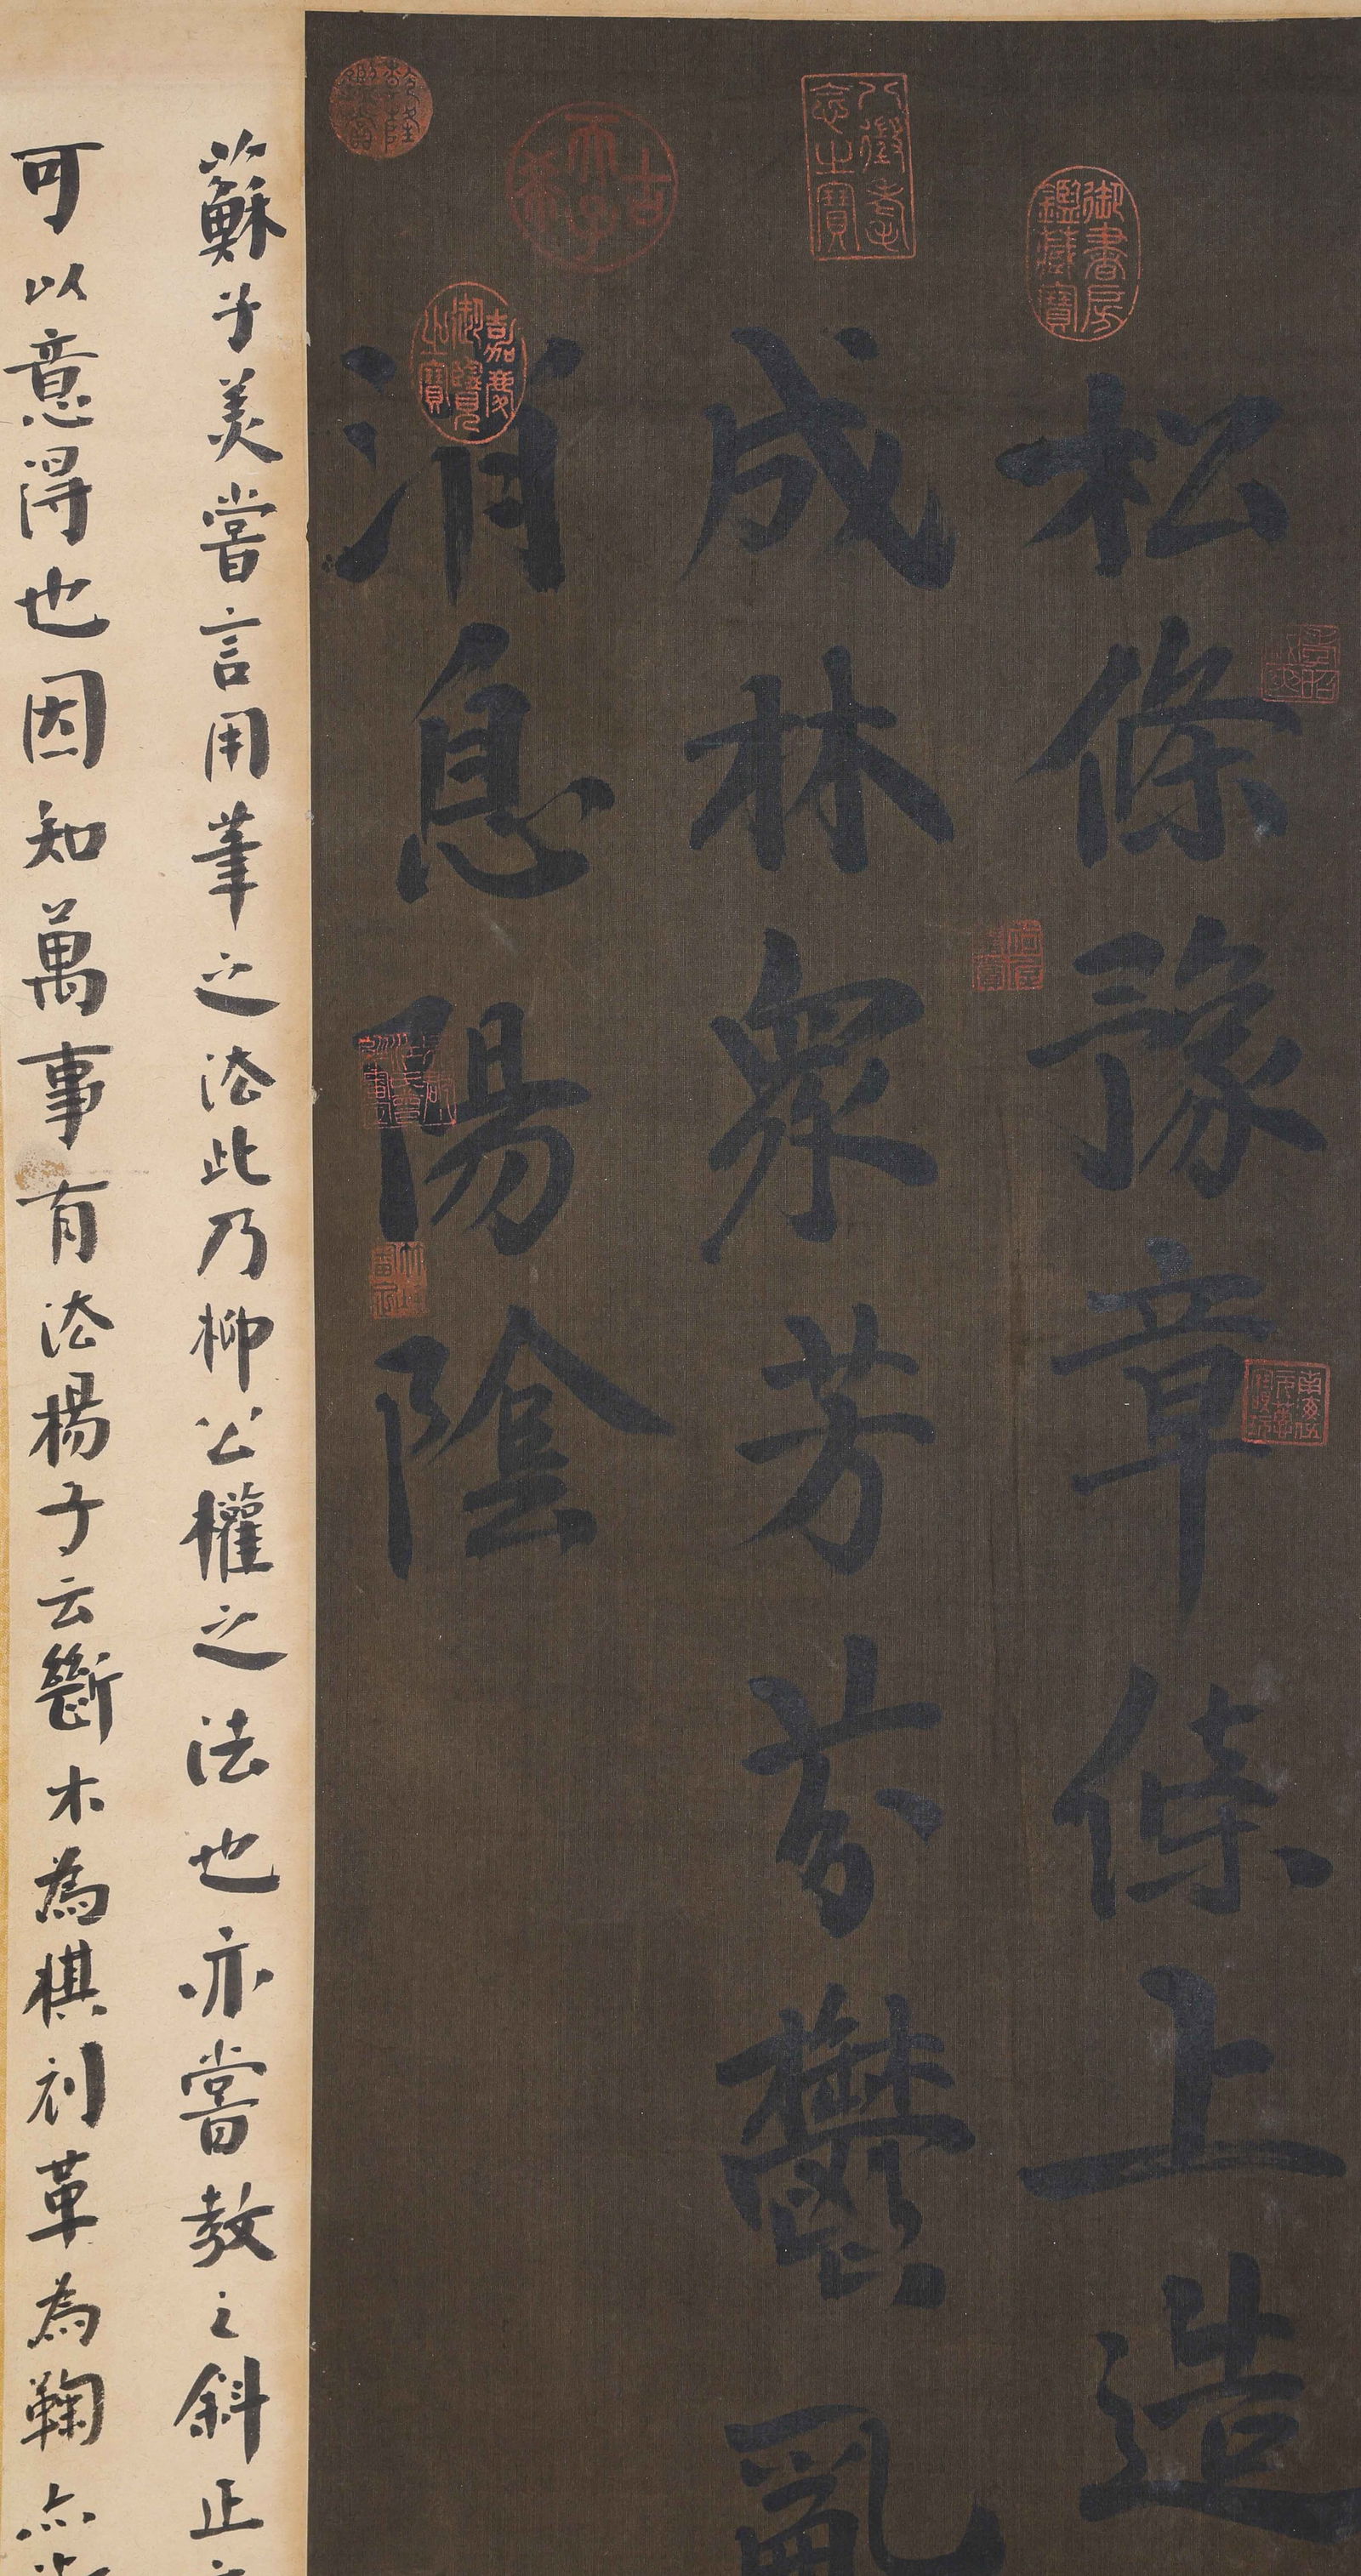 御書房鑑藏寶
八徵耄念之寶
古希天子
乾隆鑑賞
嘉慶御覽之寶
松條豫章條上造
成林衆芳芬鬱亂
消息陽陰
蘇子美嘗言用筆之法此乃柳公權之法也亦嘗教之斜正
可以意得也因知萬事有法楊子云斷木為棋刓革為鞠亦